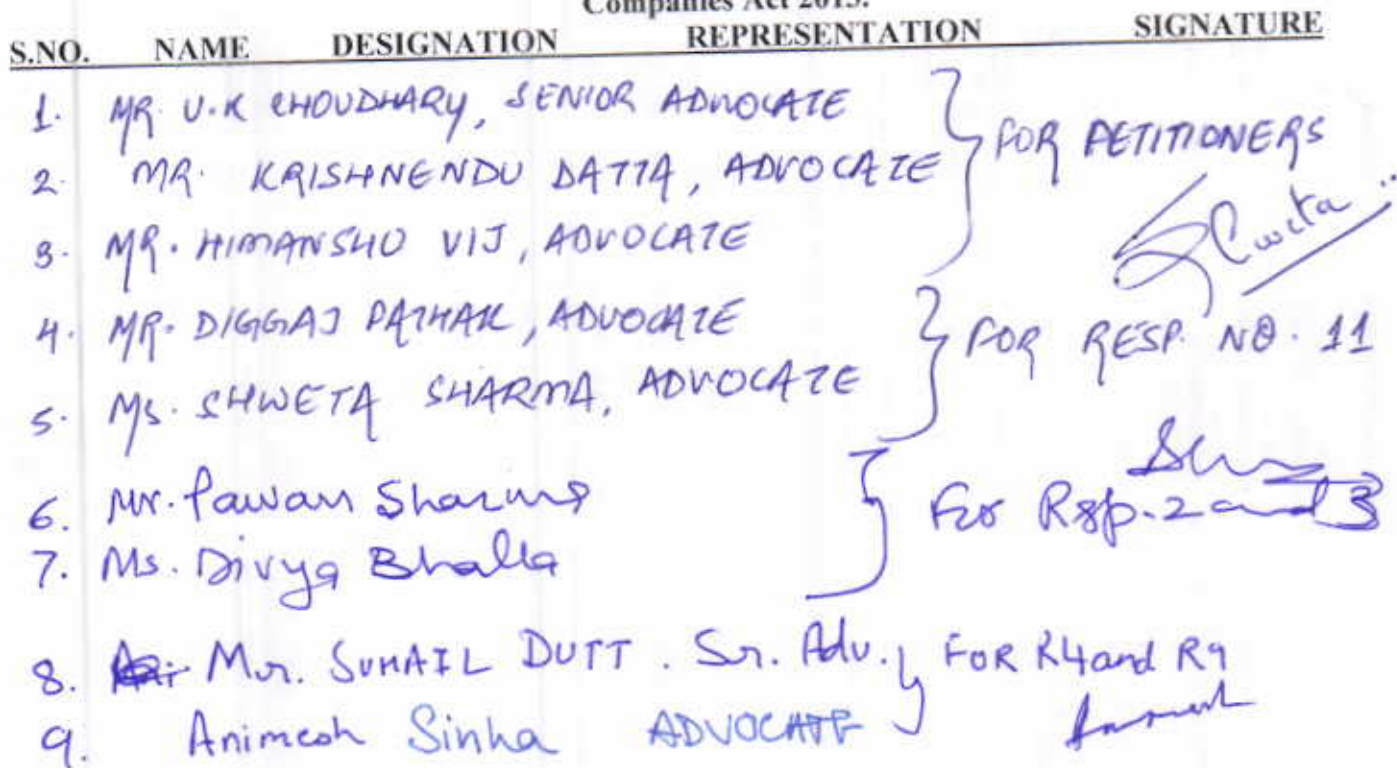 Companies Act 2013.
S.NO. NAME DESIGNATION REPRESENTATION SIGNATURE
1. MR. U.K CHOUDHARY, SENIOR ADVOCATE
2. MR. KRISHNENDU DATTA, ADVOCATE FOR PETITIONERS
3. MR. HIMANSHU VIJ, ADVOCATE
4. MR. DIGGAJ PATHAK, ADVOCATE
5. MS. SHWETA SHARMA, ADVOCATE FOR RESP. NO. 11
6. Mr. Pawan Sharma
7. Ms. Divya Bhalla For Rsp. 2 and 3
8. Mr. SUHAIL DUTT. Sr. Adv. FOR R4 and R9
9. Animesh Sinha ADVOCATE